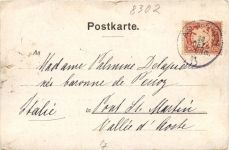 8302
Postkarte.
Madame Palmire Delapierre
née baronne de
Pont St. Martin
Italie
Vallée d'Aoste